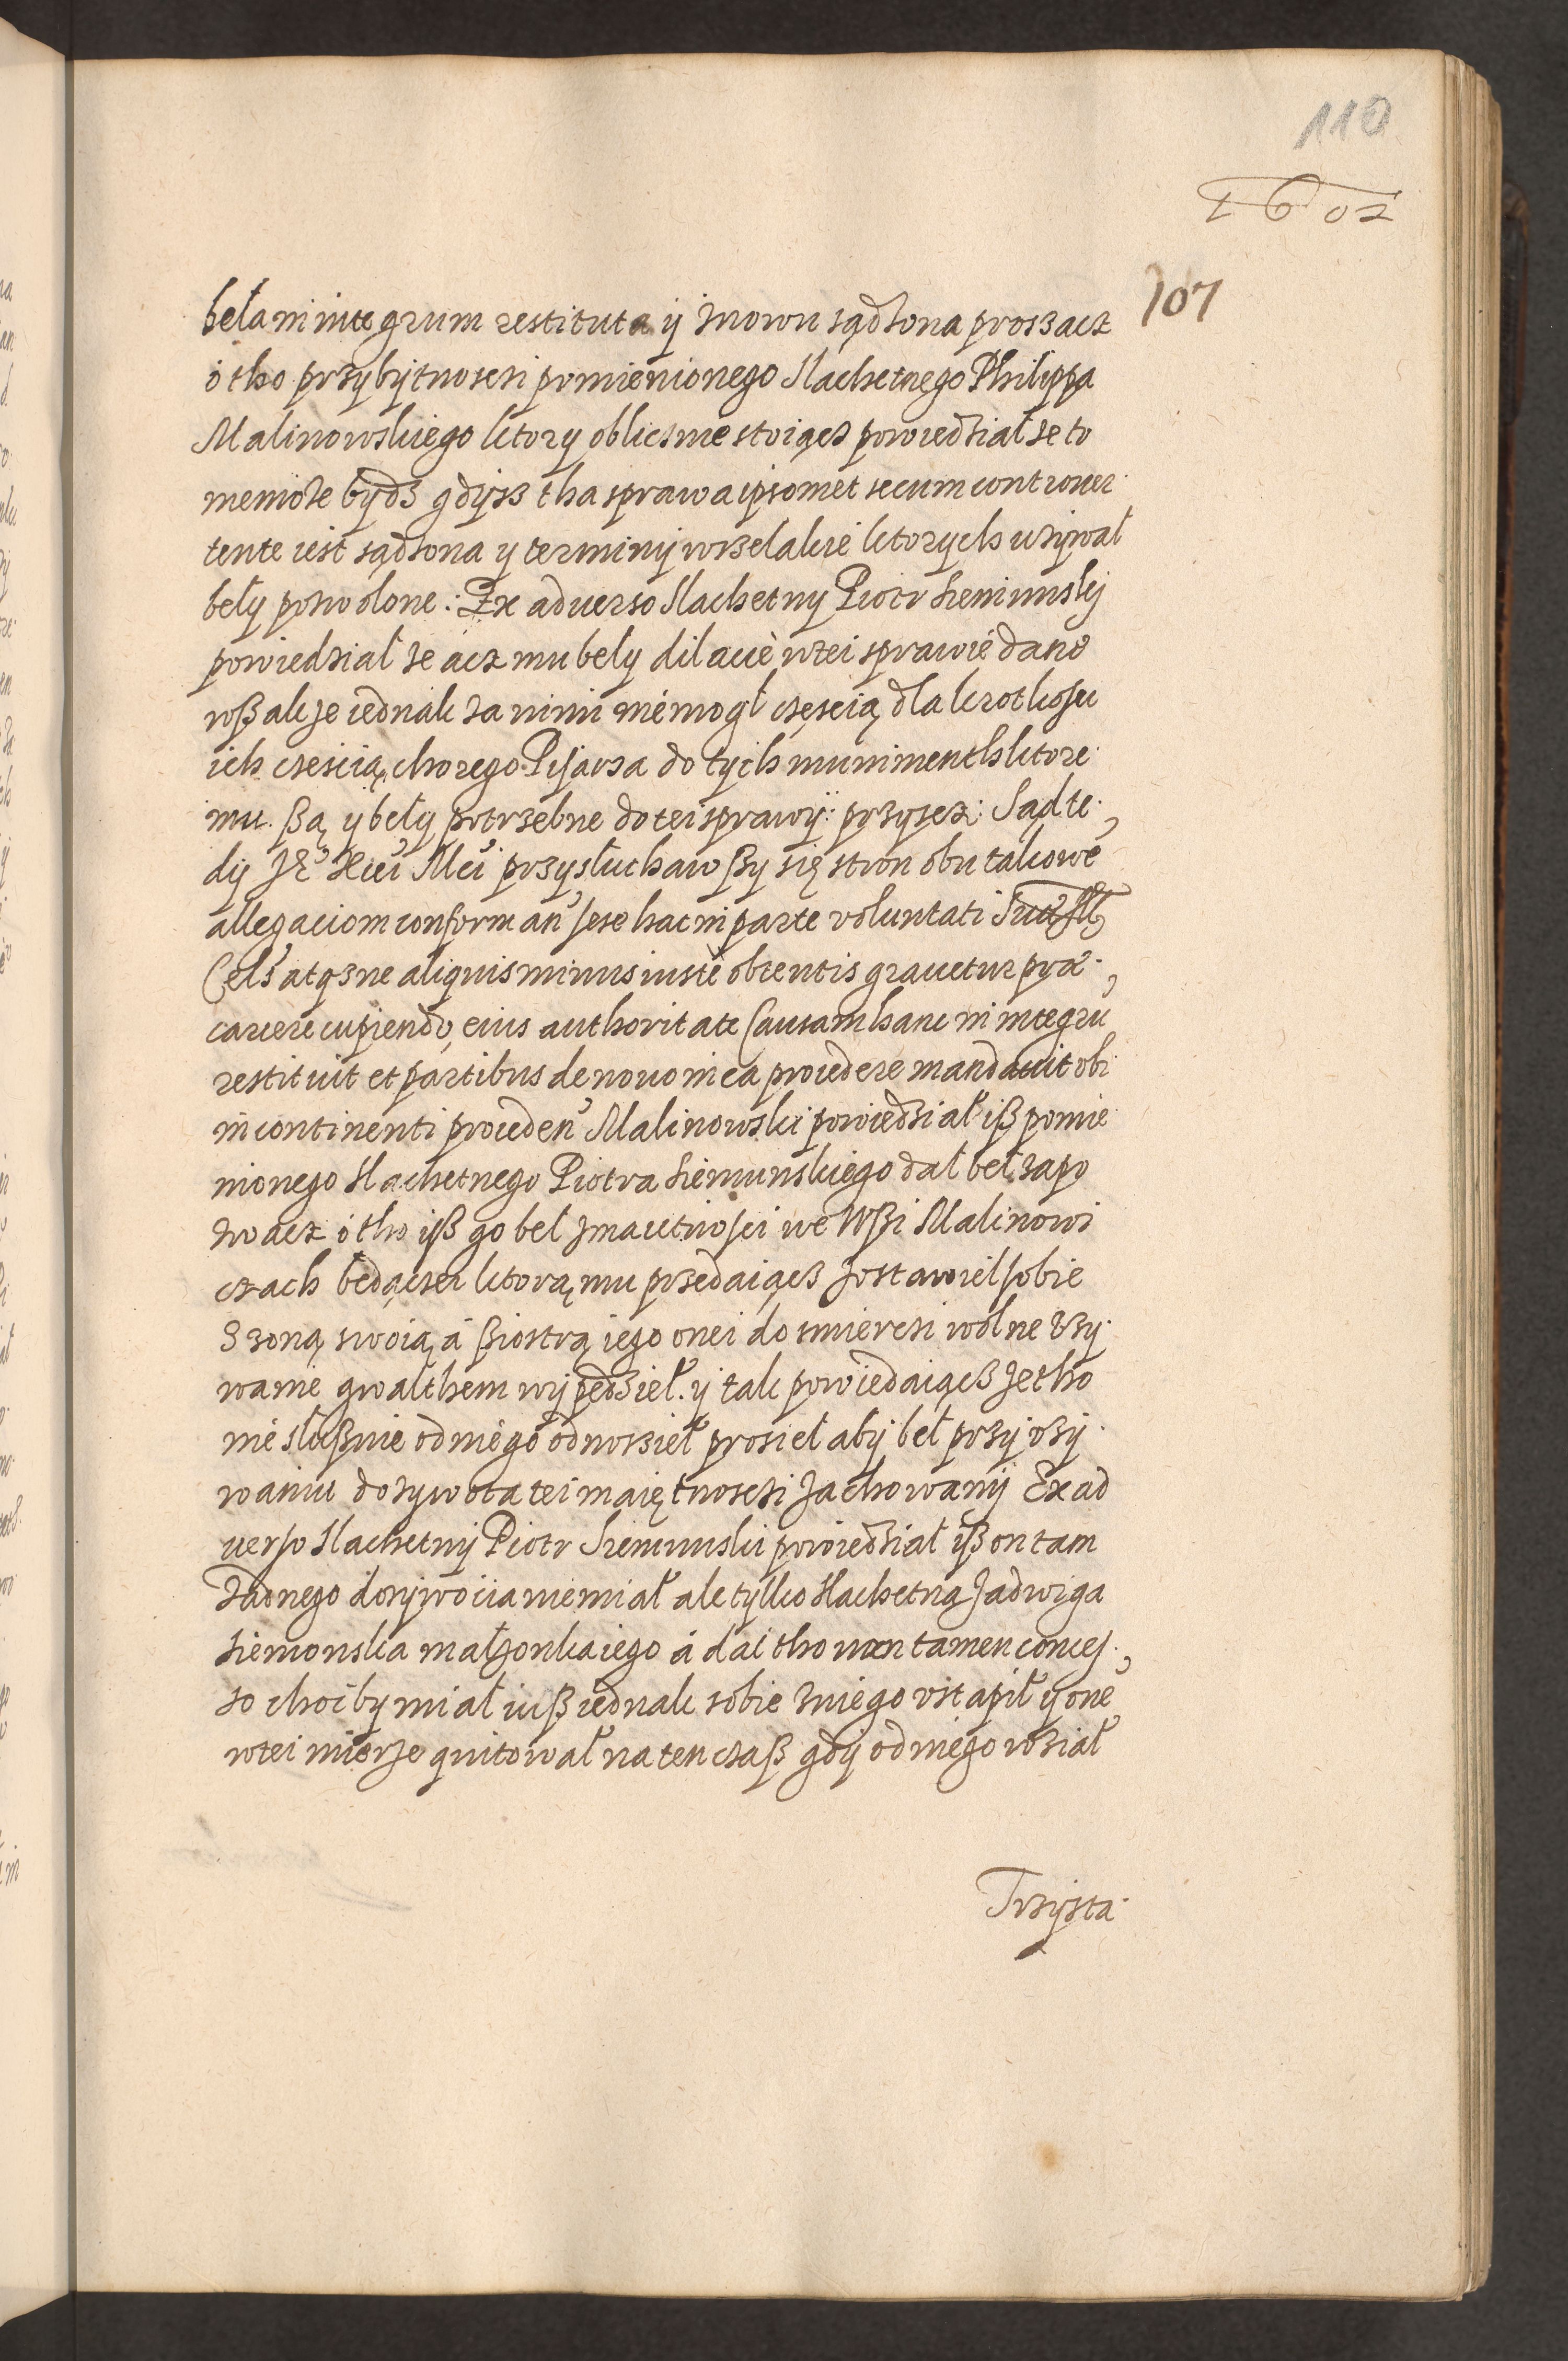 110
1602
107
beła in integrum restituta ÿ znowu sądzona proszacz
o tho przy bÿtnosczi pomienionego Slachetnego Philippa
Malinowskiego ktory oblicznie stoiącz powiedział ze to
niemoze bydz gdÿsz tha sprawa ipsomet secum controuer
tente iest sądzona y terminÿ wszelakie ktorych uzÿwał
bełÿ pozwolone: Ex aduerso Slachetny Piotr Siemunskj
powiedział ze acz mu bełÿ dilacie w tei sprawie dane
wßakze iednak za nimi niemogł częscią dla krotkosci
ich częscią chorego Pisarza do tych munimenth ktore
mu ßą ÿ bełÿ potrzebne do tei sprawÿ: przyscz: Sąd te
dÿ Je Xcei Mci przysłuchawßy się stron obu takowe
allegaciom conforman sese hac in parte voluntati Suae Illr
Cels atqz ne aliquis minus iuste obtentis grauetur prae
cauere cupiendo, eius authoritate Causam hanc in integru
restituit et partibus de nouo in ea procedere mandauit vbi
in continenti proceden Malinowski powiedział iß pomie
nionego Slachetnego Piotra Siemunskiego dał beł zapo
zwacz o tho iß go beł z maietnosci we Wßi Malinowi
czach będączei ktorą mu przedaiącz zostawieł sobie
Z zoną swoią á ßiostrą iego onei do smierczi wolne Vzy
wanie gwałthem wÿpędzieł. ÿ tak powiedaiącz ze tho
niesłußnie od niego odnoszieł prosieł abÿ beł przÿ vzÿ
waniu dozywota tei maiętnosczi zachowanÿ Ex ad
uerso Slachetnÿ Piotr Siemunski powiedział iß on tam
zadnego dozÿwocia niemiał ale tylko Slachetną Jadwiga
Siemonska małzonka iego á dał tho non tamen conces
so choćby miał iuß iednak sobie z niego vstapił ÿ one
w tei mierze quitował na ten czaß gdÿ od niego wział
Trzysta